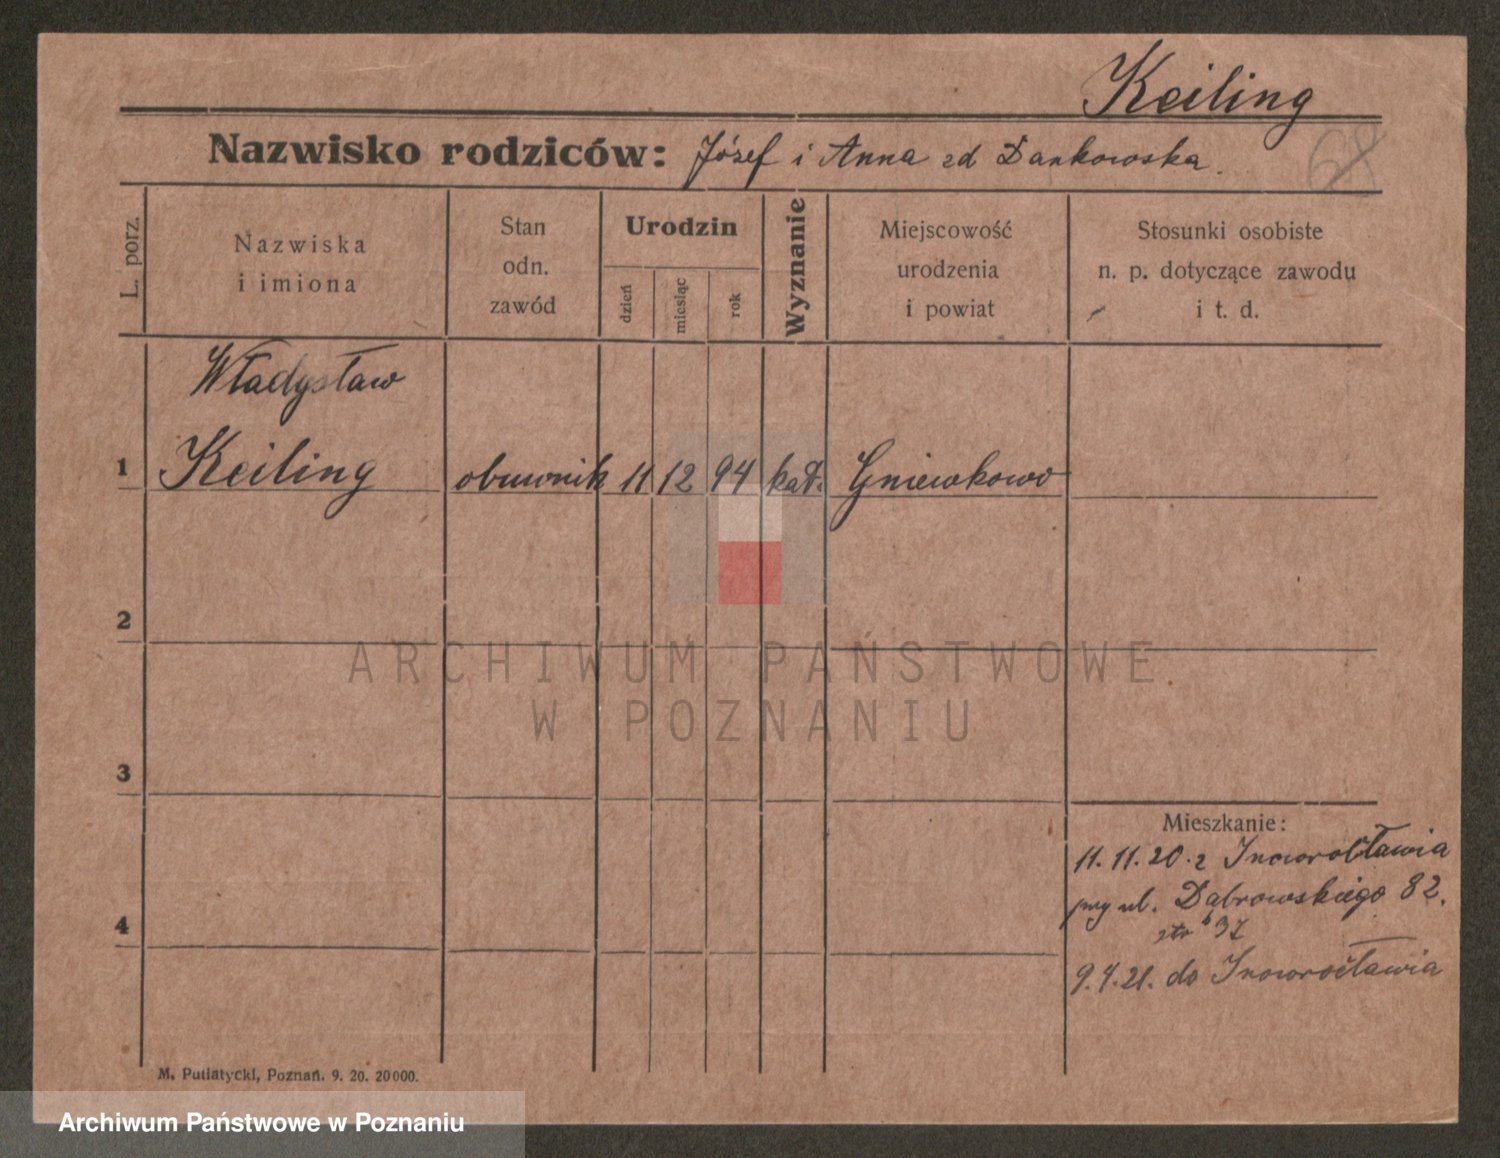 Keiling
Nazwisko rodziców: Józef i Anna zd Dankowska
68
L. porz.
Nazwiska
i imiona
Stan
odn.
zawód
Urodzin
dzień
miesiąc
rok
Wyznanie
Miejscowość
urodzenia
i powiat
Stosunki osobiste
n. p. dotyczące zawodu
i t. d.
Władysław
1 Keiling obuwnik 11 12 94 kat. Gniewkowo
2
3
4
Mieszkanie:
11. 11. 20. z Inowrocławia
przy ul. Dąbrowskiego 82.
37
9. 4. 21. do Inowrocławia
M. Putiatycki, Poznań. 9. 20. 20000.
ARCHIWUM PAŃSTWOWE
W POZNANIU
Archiwum Państwowe w Poznaniu